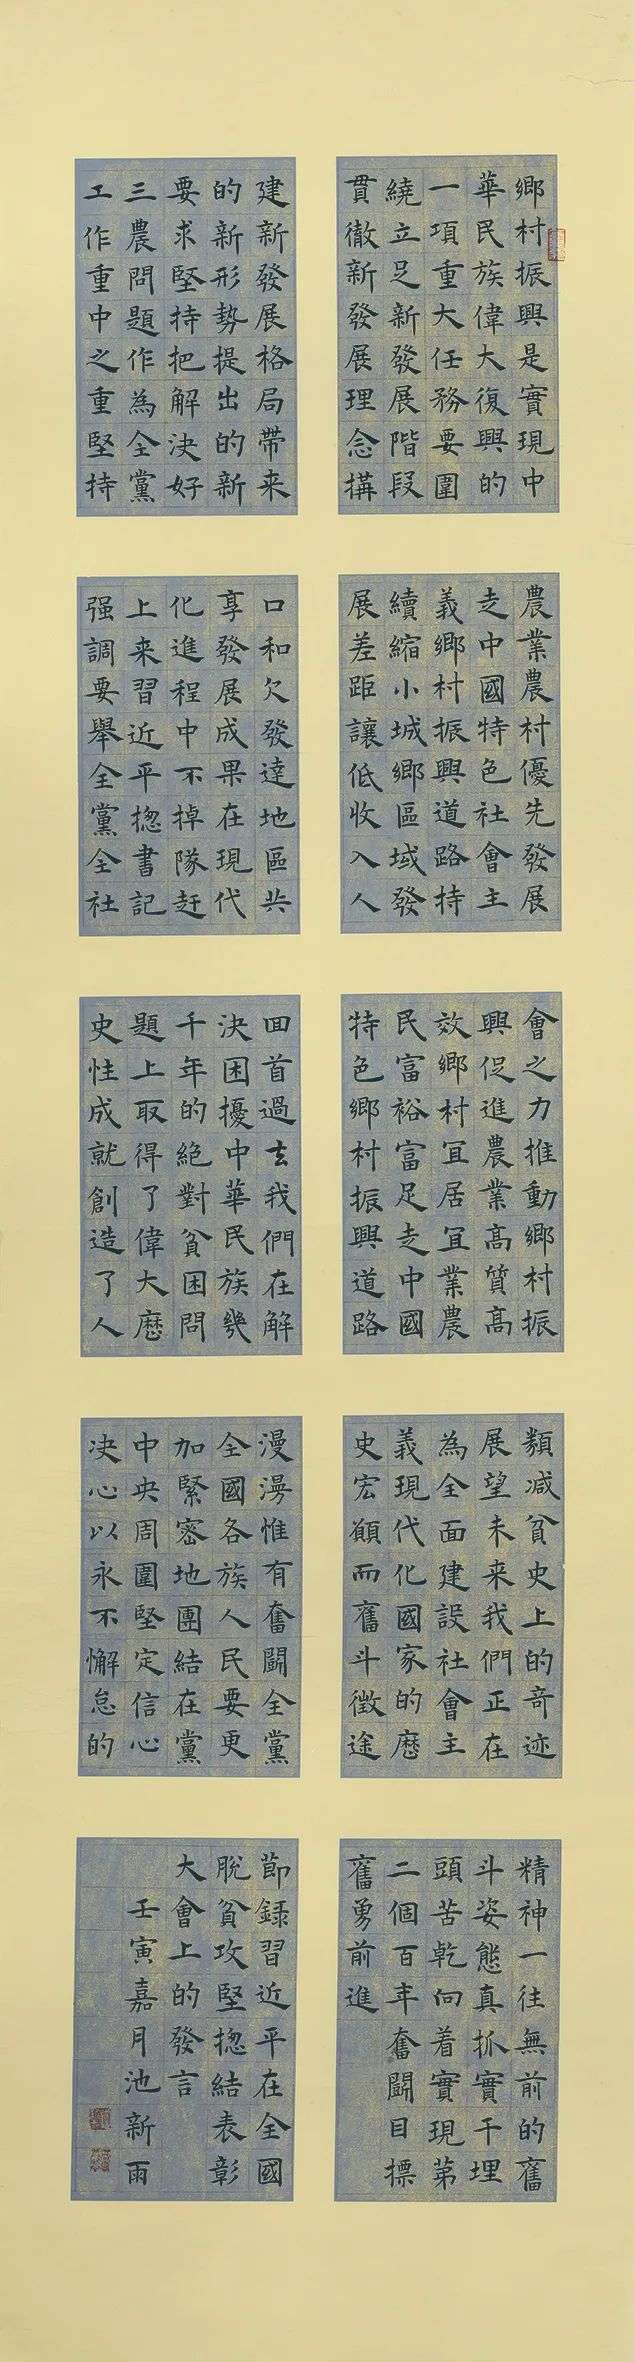 鄉村振興是實現中
華民族偉大復興的
一項重大任務要圍
繞立足新發展階段
貫徹新發展理念構
建新發展格局帶来
的新形勢提出的新
要求堅持把解決好
三農問題作為全黨
工作重中之重堅持
農業農村優先發展
走中國特色社會主
義鄉村振興道路持
續縮小城鄉區域發
展差距讓低收入人
口和欠發達地區共
享發展成果在現代
化進程中不掉隊赶
上来習近平揔書記
强調要舉全黨全社
會之力推動鄉村振
興促進農業高質高
效鄉村宜居宜業農
民富裕富足走中國
特色鄉村振興道路
回首過去我們在解
決困擾中華民族幾
千年的絕對貧困問
題上取得了偉大歷
史性成就創造了人
類减貧史上的奇迹
展望未来我們正在
為全面建設社會主
義現代化國家的歷
史宏願而奮斗徵途
漫漫惟有奮鬭全黨
全國各族人民要更
加緊密地團結在黨
中央周圍堅定信心
决心以永不懈怠的
精神一往無前的奮
斗姿態真抓實干埋
頭苦乾向着實現第
二個百年奮鬭目標
奮勇前進
節録習近平在全國
脫貧攻堅揔結表彰
大會上的發言
壬寅嘉月池新雨